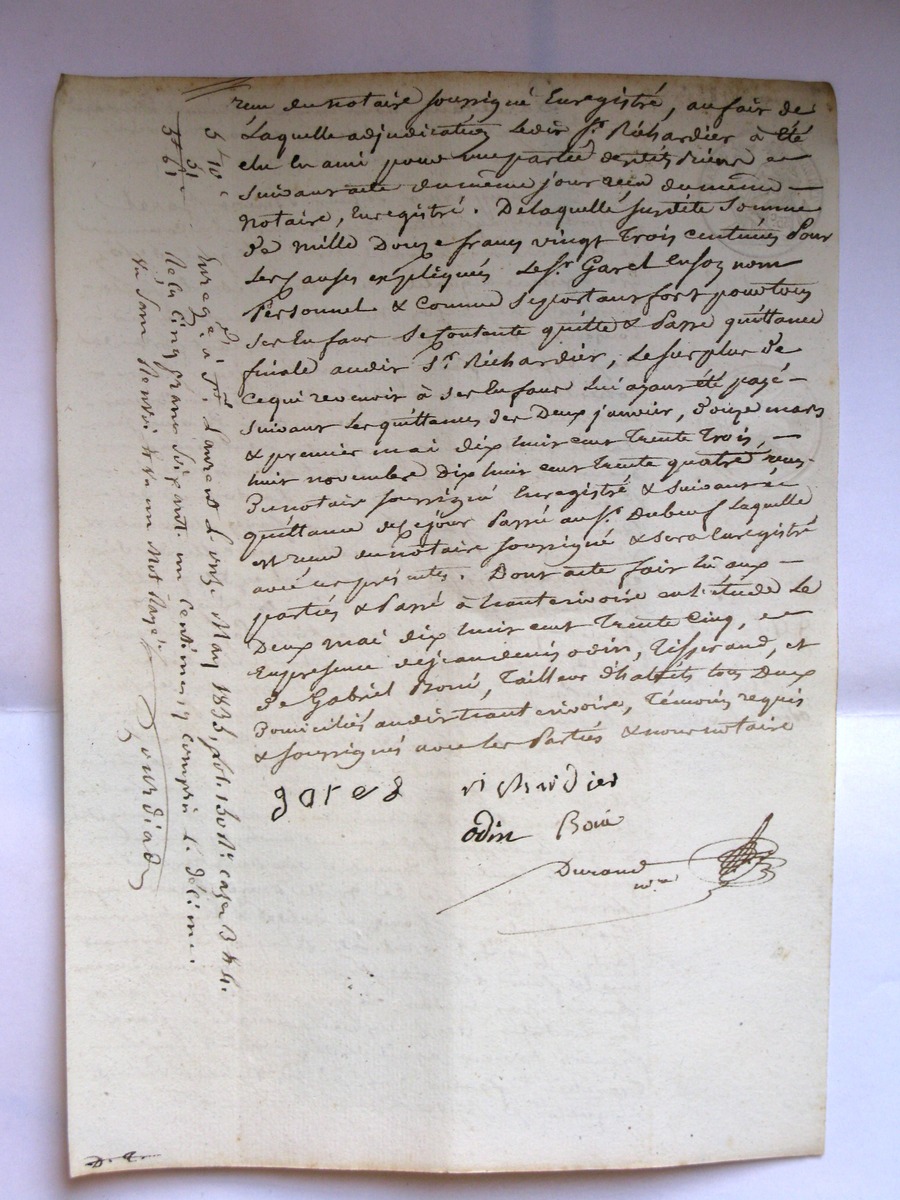 reçu du notaire soussigné Enregistré, au fait de
Laquelle adjudication Ledit Sr. Richardier à été
élu En ami pour une partie desdits biens
suivant acte du même jour reçu du même
Notaire, Enregistré. De laquelle susdite somme
de mille Douze francs vingt trois centimes pour
les causes expliquées Le Sr. Garel En son nom
Personnel & Comme se portant fort pour tous
ses Enfans se Contente quitte & Passe quittance
finale audit Sr. Richardier, Le surplus de
ce qui revenoit à ses Enfans lui ayant été payé
suivant les quittances des Deux janvier, douze mars
& premier mai dix huit cent trente trois,
huit novembre Dix huit cent trente quatre reçus
Du notaire soussigné Enregistrés & suivant
quittance de ce jour Passée au Sr. Dubeuf Laquelle
est reçue du notaire soussigné & sera Enregistré
avec ces présentes. Dont acte fait lu aux
parties & Passé à hauterivoire en l'étude Le
Deux mai dix huit cent trente Cinq,
En présence de jean denis odin, Tisserand, et
de Gabriel Boué, Tailleur d'habits tous Deux
Domiciliés audit hauterivoire, Témoins requis
& soussignés avec les Parties & nous notaire
garel richardier
odin Boué
Durand
nre
5 10 c
51
5 61
Enregé à St. Laurent L'onze May 1835, fol. 130 Ro. case 3 & 4.
Reçu Cinq francs Soixante un Centimes y compris le décime